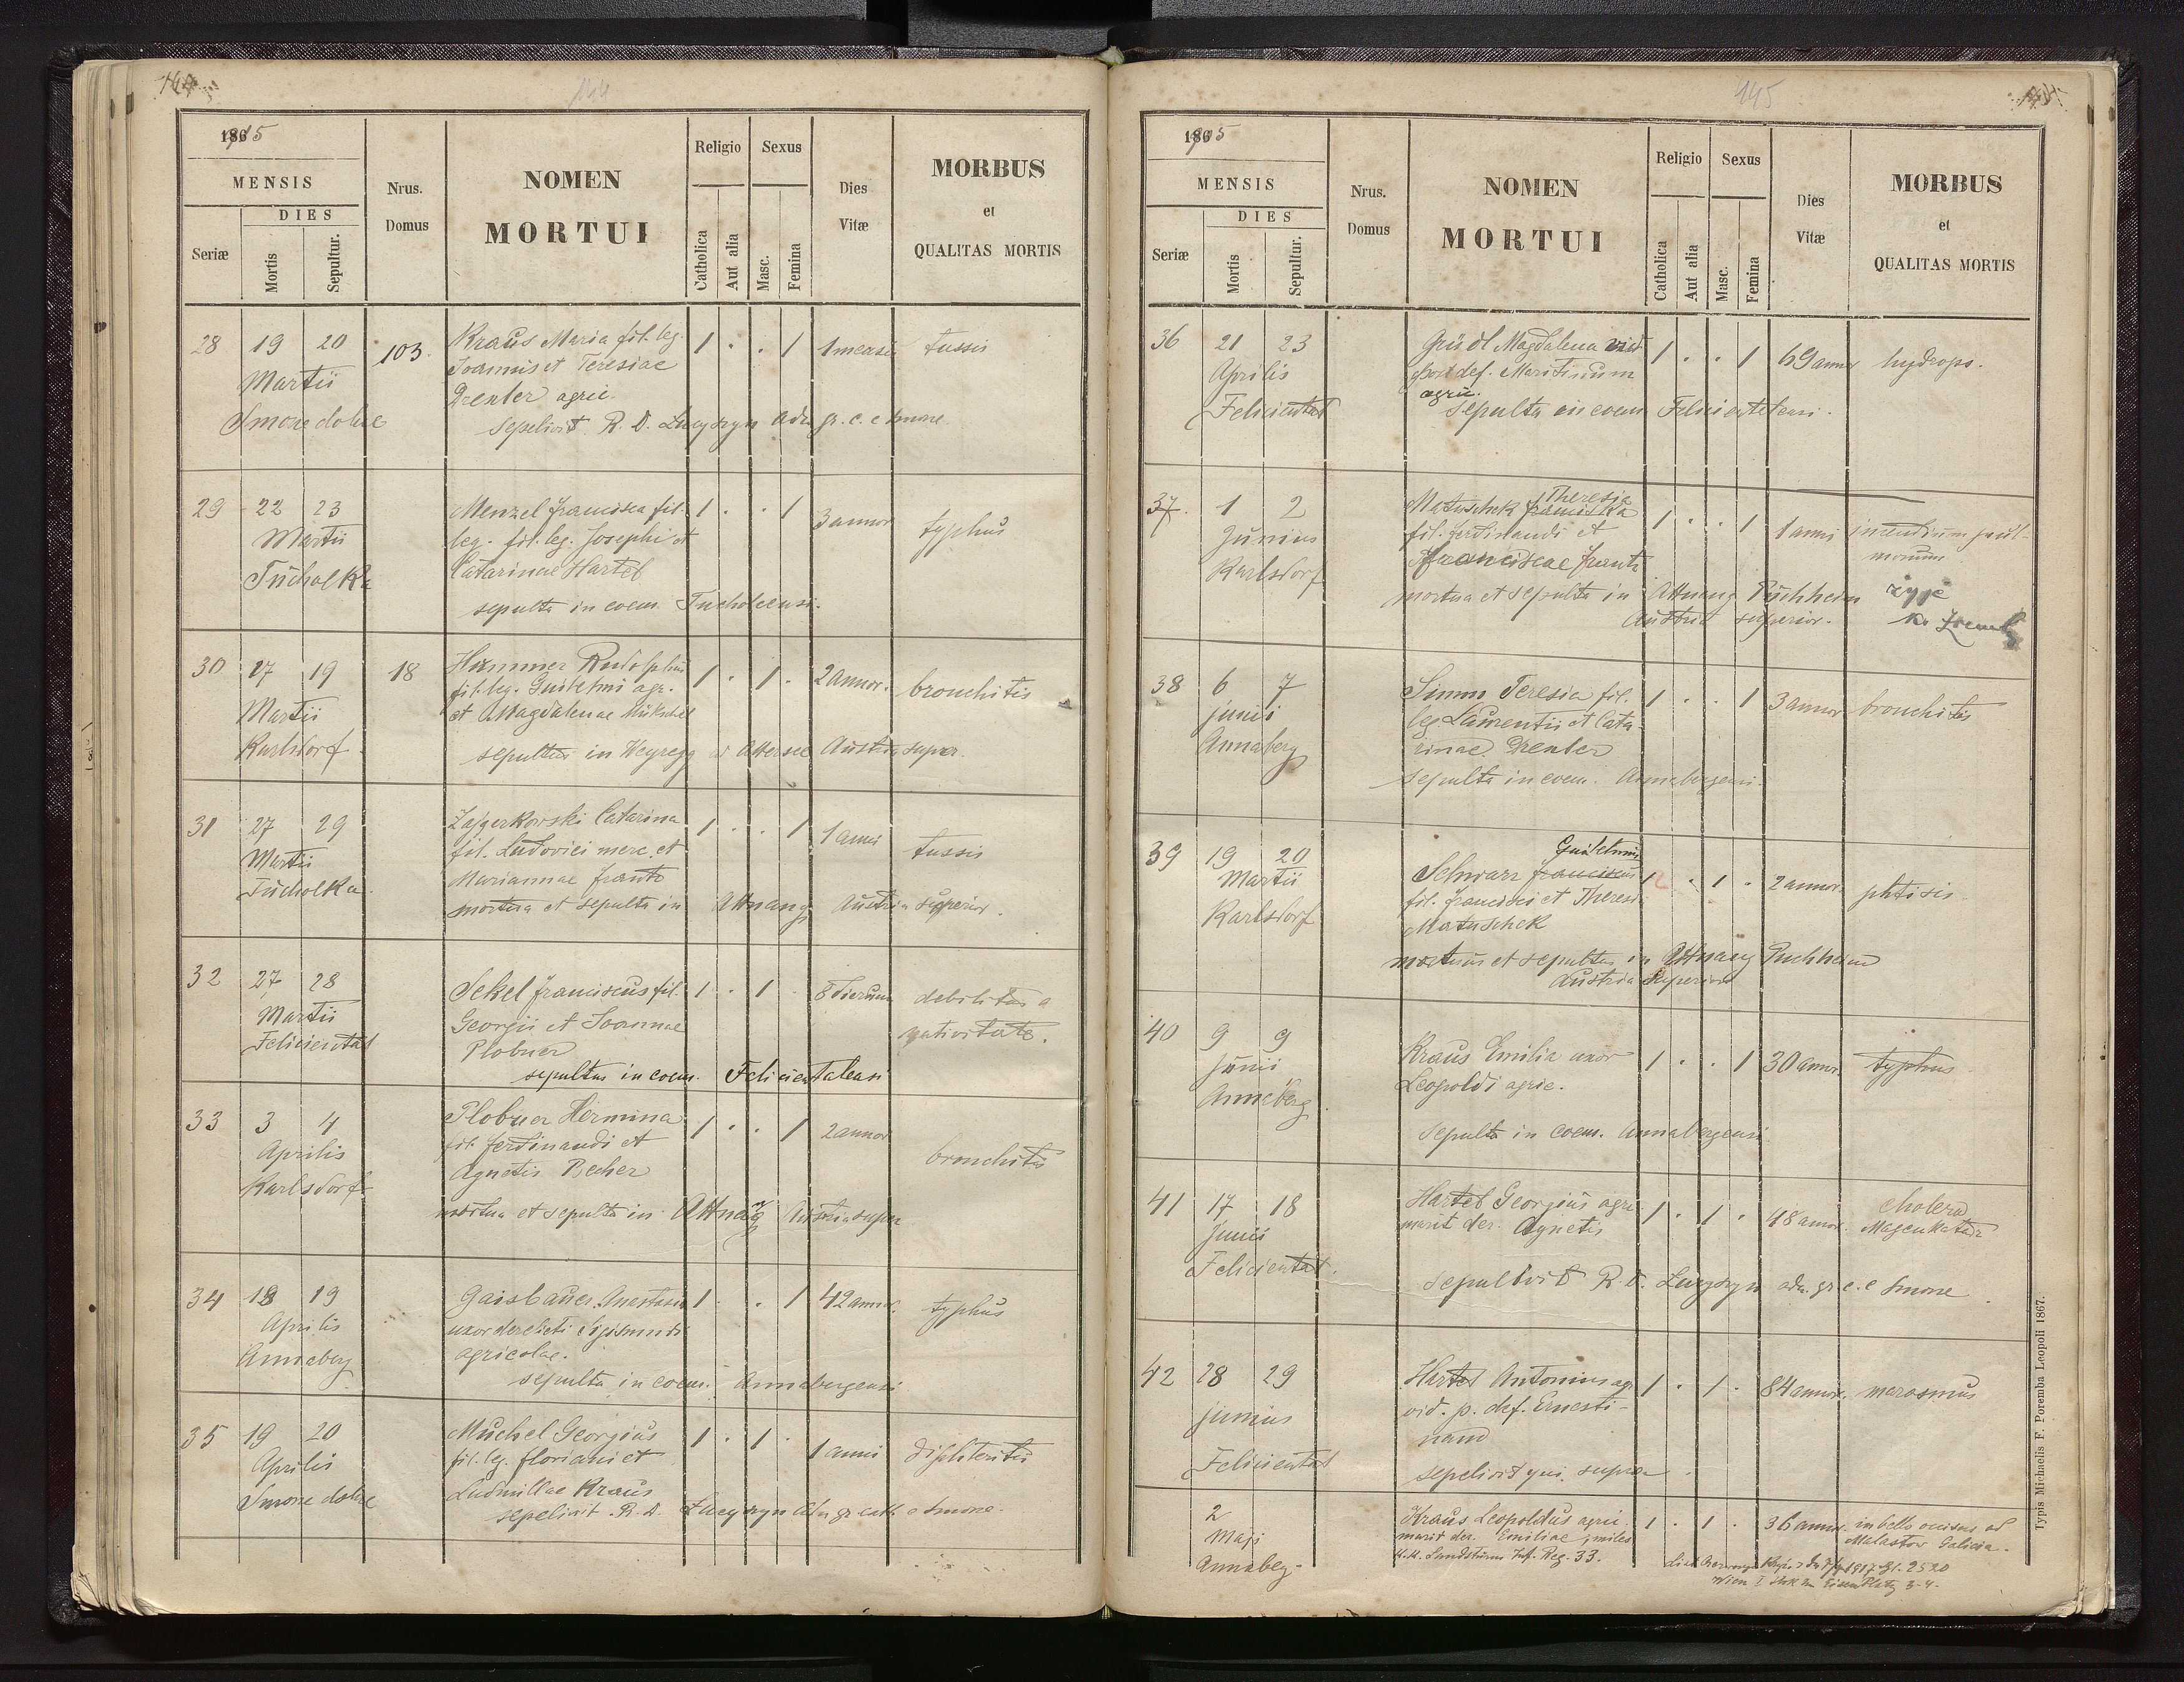 144
1915
MENSIS
DIES
Seriæ
Mortis
Sepultur.
Nrus.
Domus
NOMEN
MORTUI
Religio
Catholica
Aut alia
Sexus
Masc.
Femina
Dies
Vitæ
MORBUS
et
QUALITAS MORTIS
28 19 20 103. Kraus Maria fil. leg. 1 . . 1 1 mensis tussis
Martii Joannis et Teresiae
Smorze dolne Drexler agric.
Sepelivit R. D. Lucyszyn adm. gr. c. e Smorze
29 22 23 Menzel Francisca fil. 1 . . 1 3 annor typhus
Martii leg. fil. leg. Josephi et
Tucholka Catarinae Hartel
sepulta in coem. Tucholcensi.
30 27 19 18 Hammer Rudolphus 1 . 1 . 2 annor. bronchitis
Martii fil. leg. Guilelmi agr.
Karlsdorf et Magdalenae
sepultus in Weyregg ad Attersee Austria super.
31 27 29 Zajgerkowski Catarina 1 . . 1 1 anni tussis
Martii fil. Ludovici merc. et
Tucholka Mariannae Frantz
mortua et sepulta in Attnang Austria superior.
32 27 28 Sekel Franciscus fil. 1 . 1 8 dierum debilitas a
Martii Georgii et Joannae nativitate.
Feliciental Plobner
sepultus in coem. Felicientalensi
33 3 4 Plobner Hermina 1 . . 1 2 annor bronchitis
Aprilis fil. Ferdinandi et
Karlsdorf Agnetis Becher
mortua et sepulta in Attnang Austria super
34 18 19 Gaisbauer Anastasia 1 . 1 42 annor. typhus
Aprilis uxor derelicti Sigismundi
Annaberg agricolae.
sepulta in coem. Annabergensi
35 19 20 Muchel Georgius 1 . 1 . 1 anni diphteritis
Aprilis fil. leg. Floriani et
Smorze dolne Ludmillae Kraus
sepelivit R. D. Lucyszyn adm gr cath e Smorze.
145
1915
MENSIS
DIES
Seriæ
Mortis
Sepultur.
Nrus.
Domus
NOMEN
MORTUI
Religio
Catholica
Aut alia
Sexus
Masc.
Femina
Dies
Vitæ
MORBUS
et
QUALITAS MORTIS
36 21 23 Gründl Magdalena vid 1 . . 1 69 annor hydrops.
Aprilis post def. Maritinum
Feliciental agric.
sepulta in coem Felicientalensi.
37. 1 2 Matuschek Francisca Theresia 1 . . 1 1 anni incendium pul-
Junius fil. Ferdinandi et monum
Karlsdorf Franciscae Frantz
mortua et sepulta in Attnang Puchheim żyje
Austria superior.
38 6 7 Simm Teresia fil. 1 . . 1 3 annor bronchitis
junii leg Laurentii et Cata-
Annaberg rinae Drexler
Sepulta in coem. Annabergensi.
39 19 20 Schwarz Franciscus Guilelmus 1 . 1 . 2 annor. phtisis
Martii fil. Francisci et Theresi
Karlsdorf Matuschek
mortuus et sepultus in Attnang Puchheim
Austria superior
40 9 9 Kraus Emilia uxor 1 . . 1 30 annor. typhus
junii Leopoldi agric.
Annaberg
Sepulta in coem. Annabergensi
41 17 18 Hartel Georgius agri 1 . 1 . 48 annor. cholera
Junii marit der. Agnetis Magenkatar
Feliciental.
Sepelivit R. D. Lucyszyn adm. gr. c. e Smorze
42 28 29 Hartel Antonius ag. 1 . 1 . 84 annor. marasmus
junius vid. p. def. Ernesti-
Feliciental nam
sepelivit qui supra.
2 Kraus Leopoldus agric. 1 . 1 . 36 annor. in bello occisus ad
Maji marit der. Emiliae, miles Malastow Galicia.
Annaberg K.K. Landsturm Inf. Reg. 33.
1917 Zl. 2520
Wien I Stock im Eisen Platz 3-4.
Typis Michaelis F. Poremba Leopoli 1867.